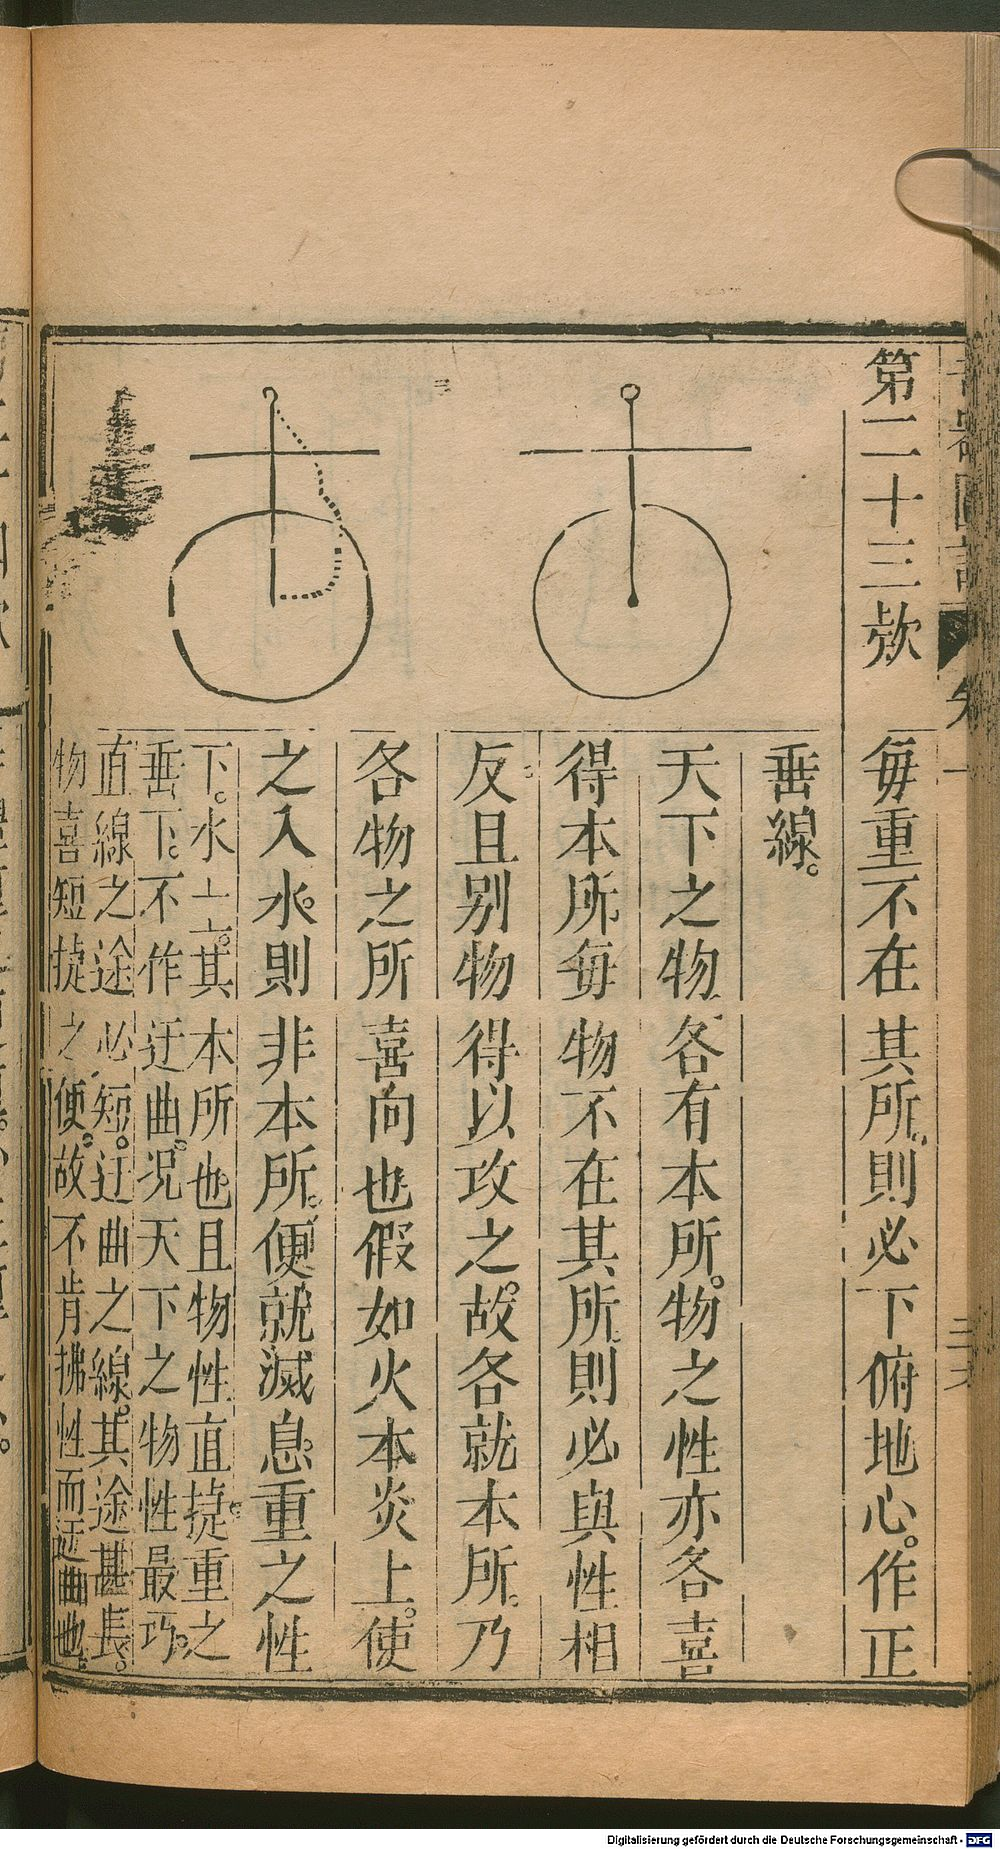 第二十三欵
每重不在其所則必下俯地心。作正
垂線。
天下之物各有本所。物之性亦各喜
得本所每物不在其所則必與性相
反且别物得以攻之。故各就本所。乃
各物之所喜向也假如火本炎上。使
之入水。則非本所。便就滅息。重之性
下。水土。其本所也且物性直捷。重之
垂下。不作迂曲。况天下之物性最巧。
直線之途必短。迂曲之線。其途甚長。
物喜短捷之便。故不肯拂性而迂曲也。
Digitalisierung gefördert durch die Deutsche Forschungsgemeinschaft - DFG